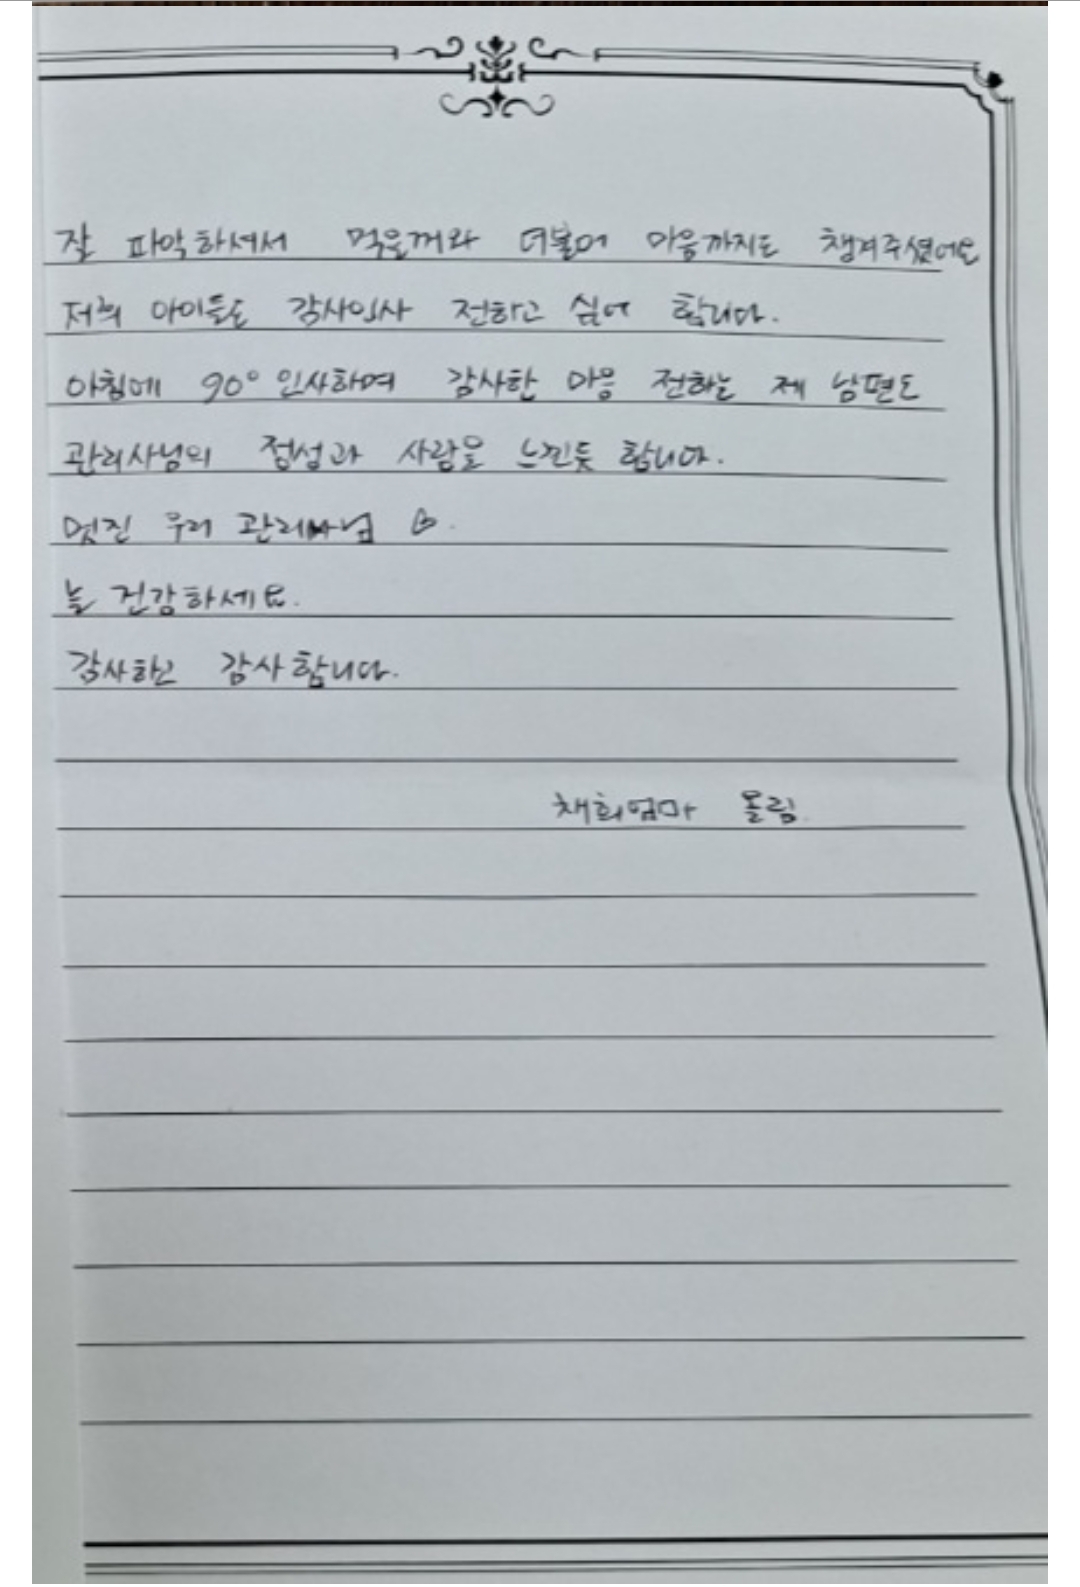 잘 파악하셔서 먹을꺼와 더불어 마음까지도 챙겨주셨어요
저희 아이들도 감사인사 전하고 싶어 합니다.
아침에 90° 인사하며 감사한 마음 전하는 제 남편도
관리사님의 정성과 사람을 느낀듯 합니다.
멋진 우리 관리사님
늘 건강하세요.
감사하고 감사합니다.
채희엄마 올림.